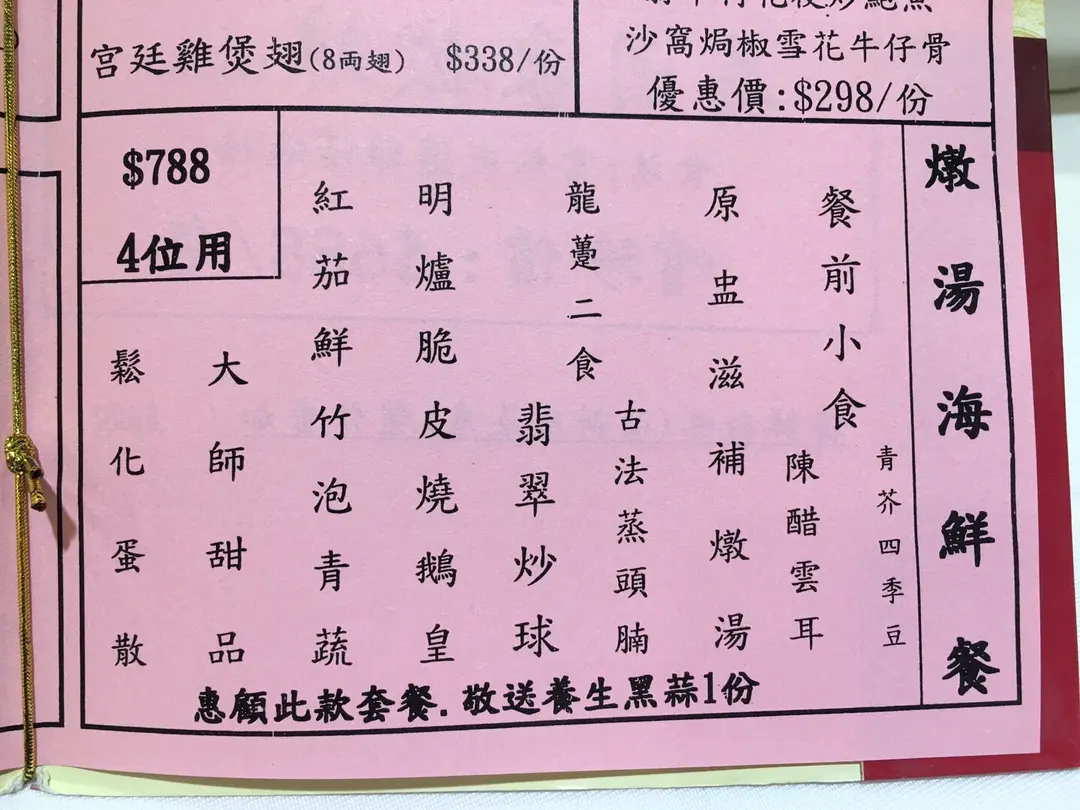 宮廷雞煲翅(8両翅) $338/份
沙窩焗椒雪花牛仔骨
優惠價:$298/份
燉湯海鮮餐
餐前小食
青芥四季豆
陳醋雲耳
原盅滋補燉湯
龍躉二食
古法蒸頭腩
翡翠炒球
明爐脆皮燒鵝皇
紅茄鮮竹泡青蔬
大師甜品
鬆化蛋散
$788
4位用
惠顧此款套餐.敬送養生黑蒜1份